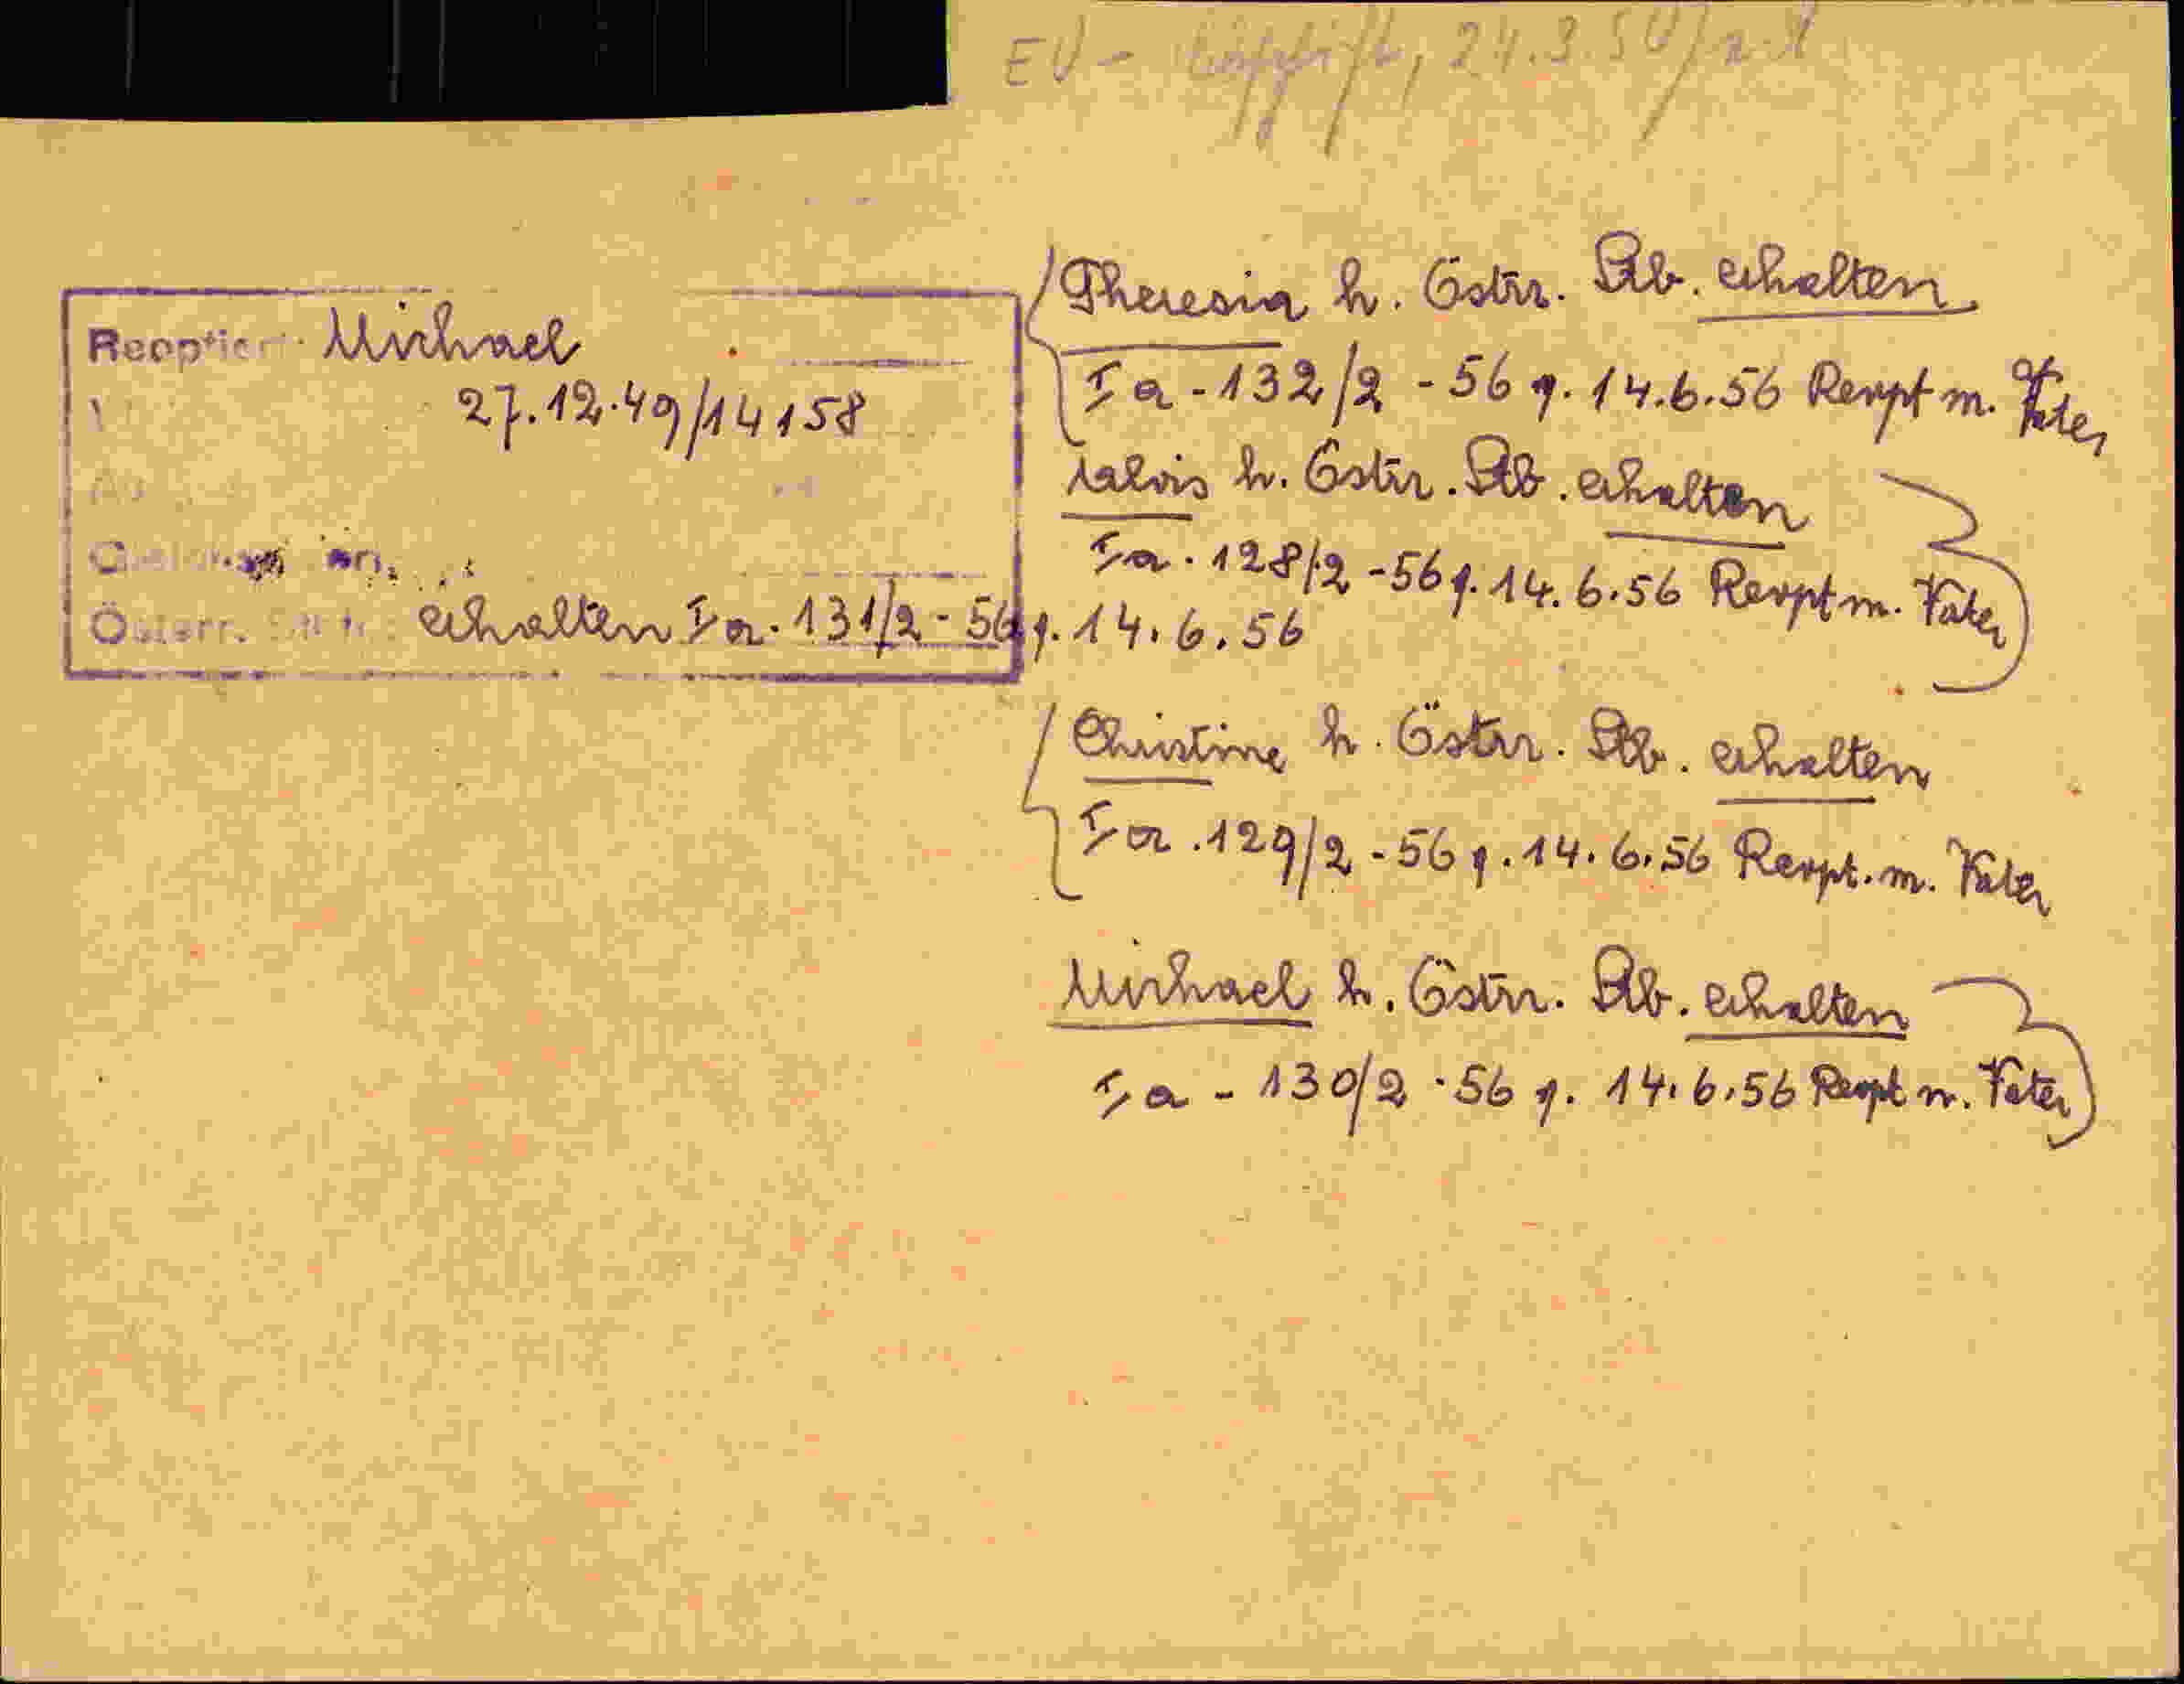 EU - 24.3.50/
Reoptiert: Michael
27.12.49/14158
Österr. erhalten I a - 131/2 - 56 g. 14.6.56
Theresia h. Östrr. Stb. erhalten
I a - 132/2 - 56 g. 14.6.56 Reopt m. Vater
Alois h. Östrr. Stb. erhalten
I a - 128/2 - 56 g. 14.6.56 Reopt m. Vater
Christine h. Östrr. Stb. erhalten
I a - 129/2 - 56 g. 14.6.56 Reopt. m. Vater
Michael h. Östrr. Stb. erhalten
I a - 130/2 - 56 g. 14.6.56 Reopt m. Vater